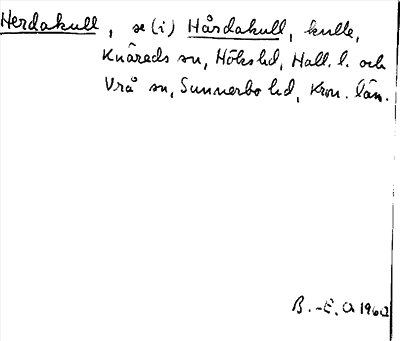 Herdakull, se (i) Hårdakull, kulle,
Knäreds sn, Höks hd, Hall. l. och
Vrå sn, Sunnerbo hd, Kron. län.
B.-E. O 1962